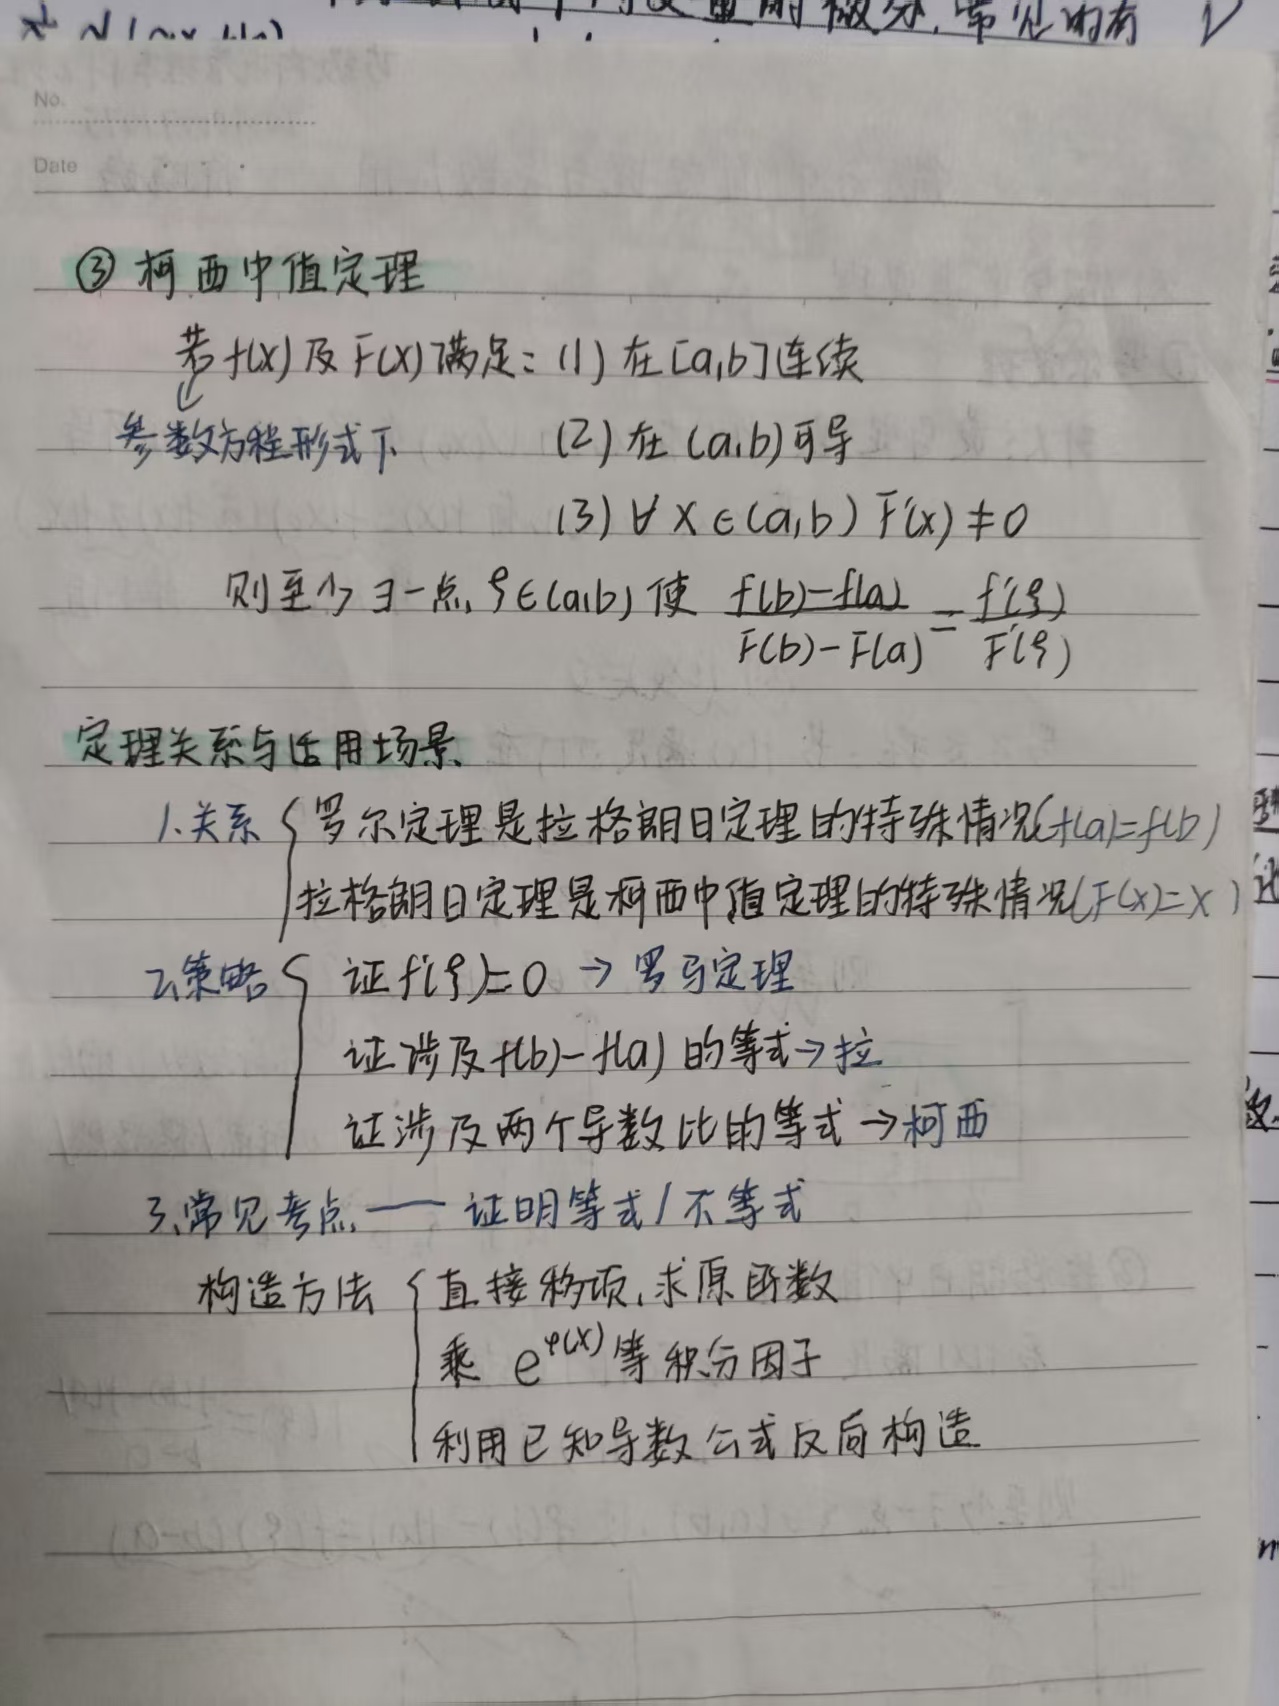 的微分,常见的有
No.
Date
③ 柯西中值定理
若f(x)及F(x)满足:(1)在[a,b]连续
参数方程形式下 (2)在(a,b)可导
(3)∀x∈(a,b) F'(x)≠0
则至少∃一点,ξ∈(a,b)使 f(b)-f(a)/F(b)-F(a) = f'(ξ)/F'(ξ)
定理关系与适用场景.
1.关系 { 罗尔定理是拉格朗日定理的特殊情况(f(a)=f(b)
拉格朗日定理是柯西中值定理的特殊情况(F(x)=x)
2.策略 { 证f'(ξ)=0 → 罗马定理
证涉及f(b)-f(a)的等式→拉
证涉及两个导数比的等式→柯西
3.常见考点 —— 证明等式/不等式
构造方法 { 直接移项,求原函数
乘 e^φ(x) 等积分因子
利用已知导数公式反向构造